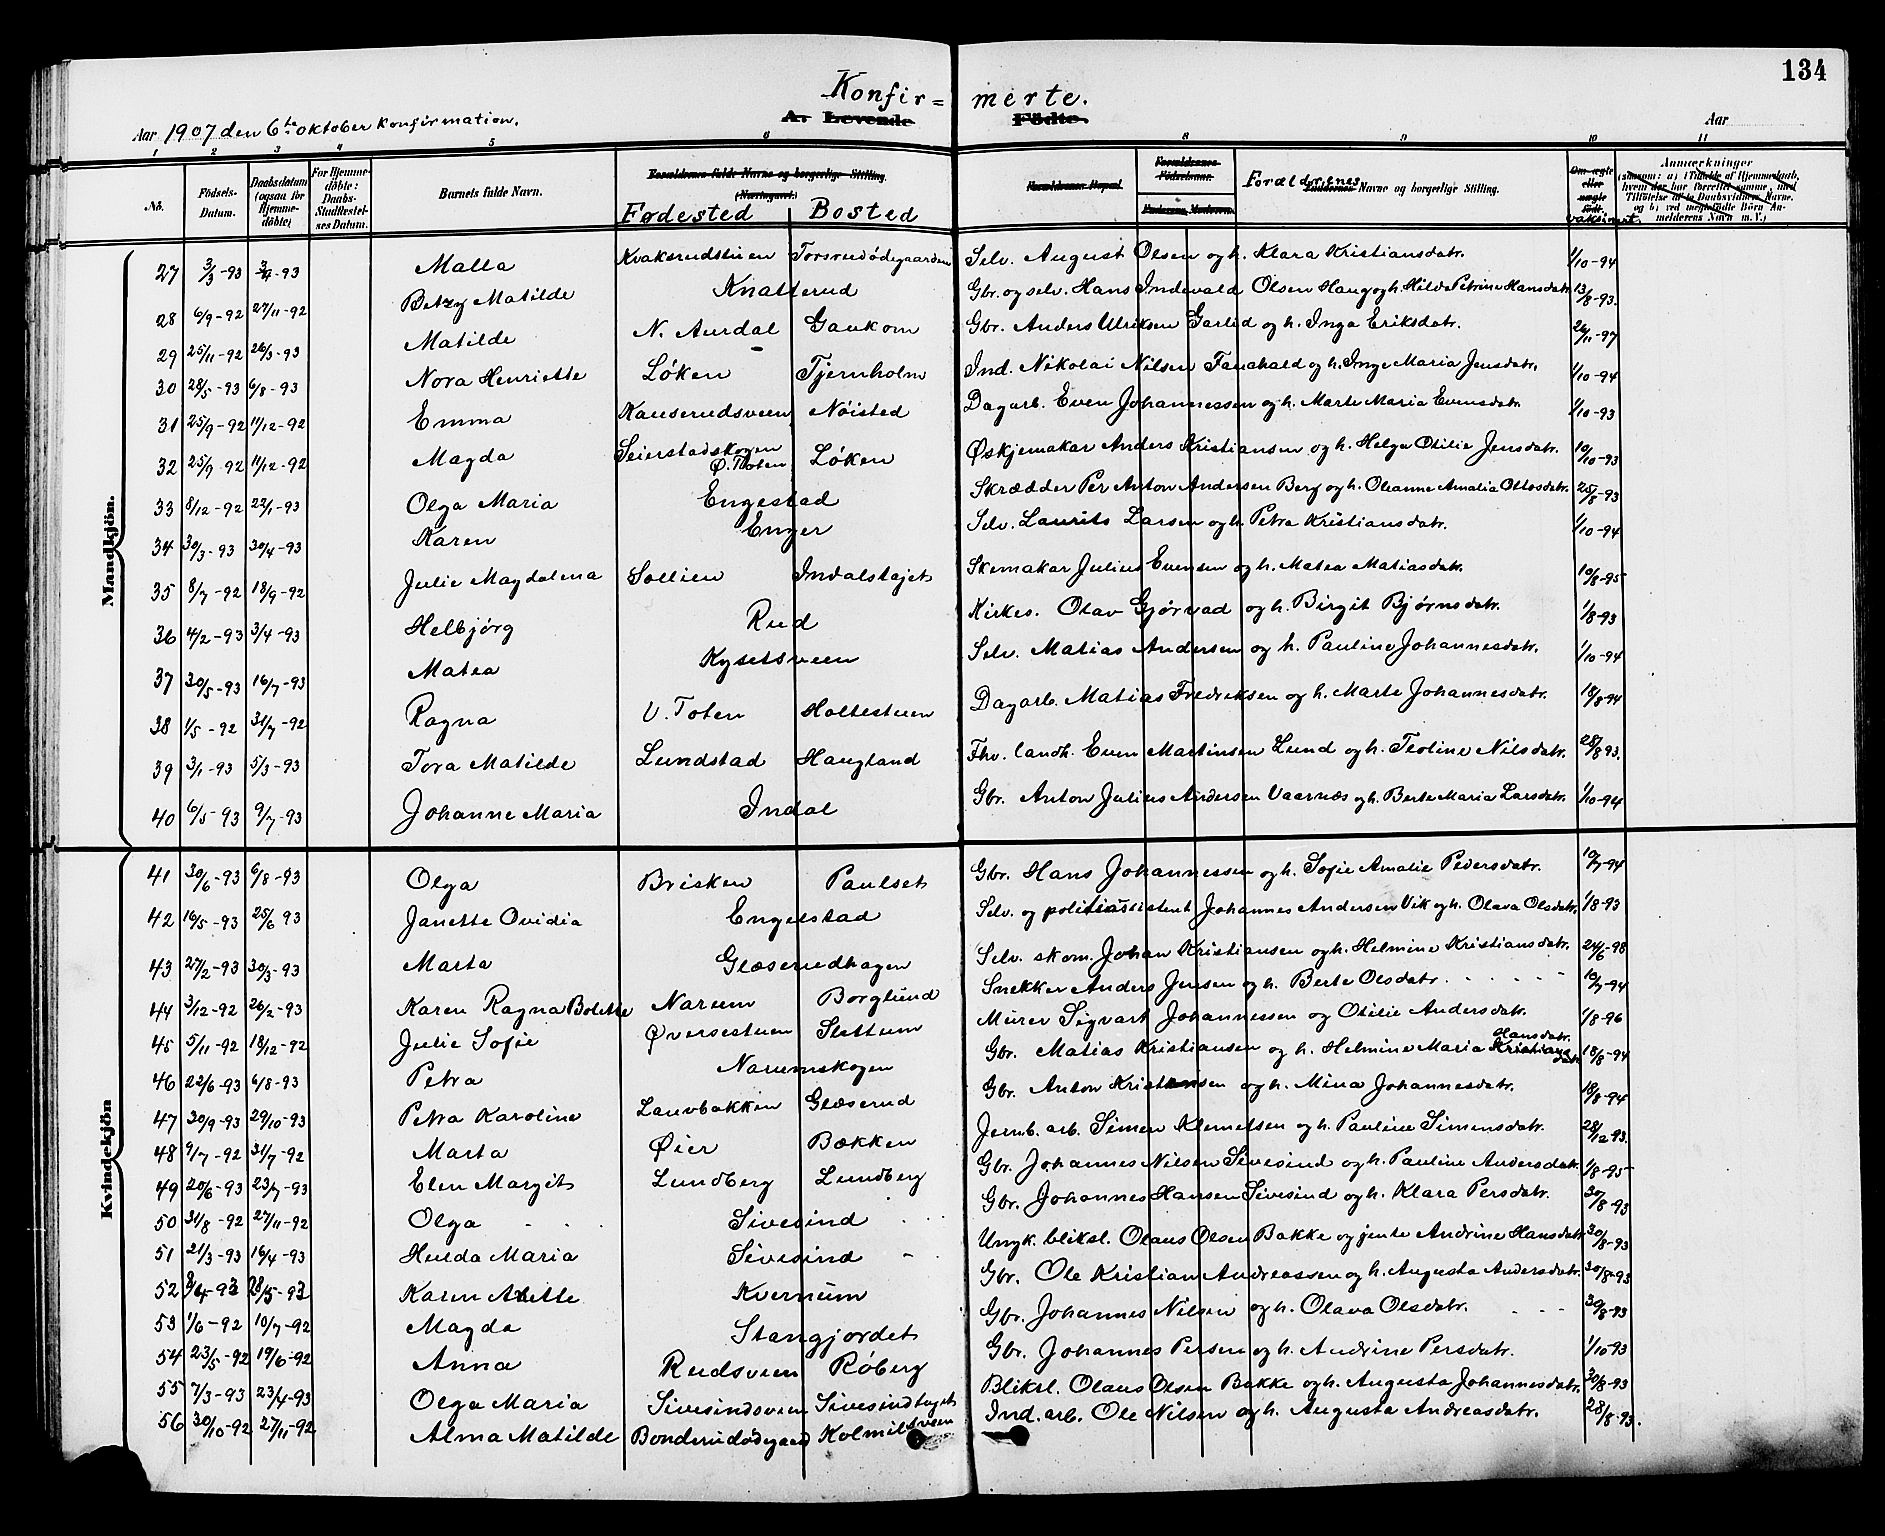 134
Konfir= merte.
Aar 1907 den 6te oktober konfirmation. A. Levende Födte. Aar
1 2 3 4 5 6 8 9 10 11
No. Födsels-Datum. Daabsdatum (ogsaa for Hjemmedöbte) For Hjemmedöbte: Daabs-Stadfæstelses Datum. Barnets fulde Navn. Forældrenes fulde Navne og borgerlige Stilling. Fødested Bosted Forældrenes Navne og borgerlige Stilling. Om ægte eller uægte født. vaksinert. Anmærkninger
Mandkjön.
27 3/3-93 -93 Malla Kvaksrudstuen Torsrudødegaarden Selv. August Olsen og h. Klara Kristiansdatr. 1/10-94
28 6/9-92 27/11-92 Betzy Matilde Knatterud Gbr. og selv. Hans Indevald Olsen Haug og h. Hilda Petrine Hansdatr. 13/8-93.
29 25/11-92 26/3-93 Matilde N. Aurdal Gaukom Gbr. Anders Ulriksen Garlid og h. Inga Eriksdatr. 26/11-97
30 28/5-93 6/8-93 Nora Henriette Løken Tjernholm Ind. Nikolai Nilsen Fauchald og h. Inge Maria Jensdatr. 1/10-94
31 25/9-92 11/12-92 Emma Kauserudsveen Nøisted Dagarb. Even Johannessen og h. Marte Maria Evensdatr. 1/10-93
32 25/9-92 11/12-92 Magda Seierstadskogen Ø. Toten Løken Øskjemakar Anders Kristiansen og h. Helga Otilie Jensdatr. 10/10-93
33 8/12-92 22/1-93 Olga Maria Engestad Skrædder Per Anton Andersen Berg og h. Oleanne Amalia Ottosdatr. 25/8-93
34 30/3-93 30/4-93 Karen Enger Selv. Laurits Larsen og h. Petra Kristiansdatr. 1/10-94
35 8/7-92 18/9-92 Julie Magdalena Sollien Indalstajet Skemakar Julius Evensen og h. Matea Matiasdatr. 10/8-95
36 4/2-93 3/4-93 Helbjörg Rud Kirkes. Olav Gjørvad og h. Birgit Bjørnsdatr. 1/8-93
37 30/5-93 16/7-93 Matea Kysetsveen Selv. Matias Andersen og h. Pauline Johannesdatr. 1/10-94
38 1/5-92 31/7-92 Ragna V. Toten Holtestuen Dagarb. Matias Fredriksen og h. Marte Johannesdatr. 18/8-94
39 3/1-93 5/3-93 Tora Matilde Lundstad Haugland Fhv. landh. Even Martinsen Lund og h. Teoline Nilsdatr. 28/8-93.
40 6/5-93 9/7-93 Johanne Maria Indal Gbr. Anton Julius Andersen Vaarnæs og h. Berte Maria Larsdatr. 1/10-94
Kvindekjön
41 30/6-93 6/8-93 Olga Brisken Paulset Gbr. Hans Johannessen og h. Sofie Amalie Pedersdatr. 10/7-94
42 16/5-93 25/6 93 Janette Ovidia Engelstad Selv. og politiassistent Johannes Andersen Vik og h. Olava Olsdatr. 1/8-93
43 27/2-93 30/3-93 Marta Glæserudhagen Selv. skom. Johan Kristiansen og h. Helmine Kristiansdatr. 24/6-98
44 3/12-92 26/2-93 Karen Ragna Bolette Narum Borglund Snekker Anders Jensen og h. Berte Olsdatr. 10/7-94
45 5/11-92 18/12-92 Julie Sofie Øversestuen Slettum Murer Sigvart Johannessen og Otilie Andersdatr. 1/8-96
46 22/6-93 6/8-93 Petra Narumskogen Gbr. Matias Kristiansen og h. Helmine Maria Kristiansdatr. Hansdatr. 18/8-94
47 30/9-93 29/10-93 Petra Karoline Lauvbakken Glæserud Gbr. Anton Kristiansen og h. Mina Johannesdatr. 18/8-94
48 9/7-92 31/7-92 Marta Øier Bækken Jernb. arb. Simen Klemetsen og h. Pauline Simensdatr. 28/12-93.
49 20/6-93 23/7-93 Elen Margit Lundberg Lundberg Gbr. Johannes Nilsen Sivesind og h. Pauline Andersdatr. 1/8-95
50 31/8-92 27/11-92 Olga Sivesind Gbr. Johannes Hansen Sivesind og h. Klara Persdatr. 30/8-93
51 21/3-93 16/4-93 Hulda Maria Sivesind Ungk. bliksl. Olaus Olsen Bakke og jente Andrine Hansdatr. 30/8-93
52 -93 28/5-93 Karen Anette Kvernum Gbr. Ole Kristian Andreassen og h. Augusta Andersdatr. 30/8-93
53 1/6-92 10/7-92 Magda Stangjordet Gbr. Johannes Nilsen og h. Olava Olsdatr. 30/8-93
54 23/5-92 19/6-92 Anna Rudsveen Røberg Gbr. Johannes Persen og h. Andrine Persdatr. 1/10-93
55 7/3-93 23/4-93 Olga Maria Sivesindsveen Sivesindtaget Bliksl. Olaus Olsen Bakke og h. Augusta Johannesdatr. 30/8-93
56 30/10-92 27/11-92 Alma Matilde Bonderudødegaard Kolmilsveen Ind. arb. Ole Nilsen og h. Augusta Andreasdatr. 28/8-93.